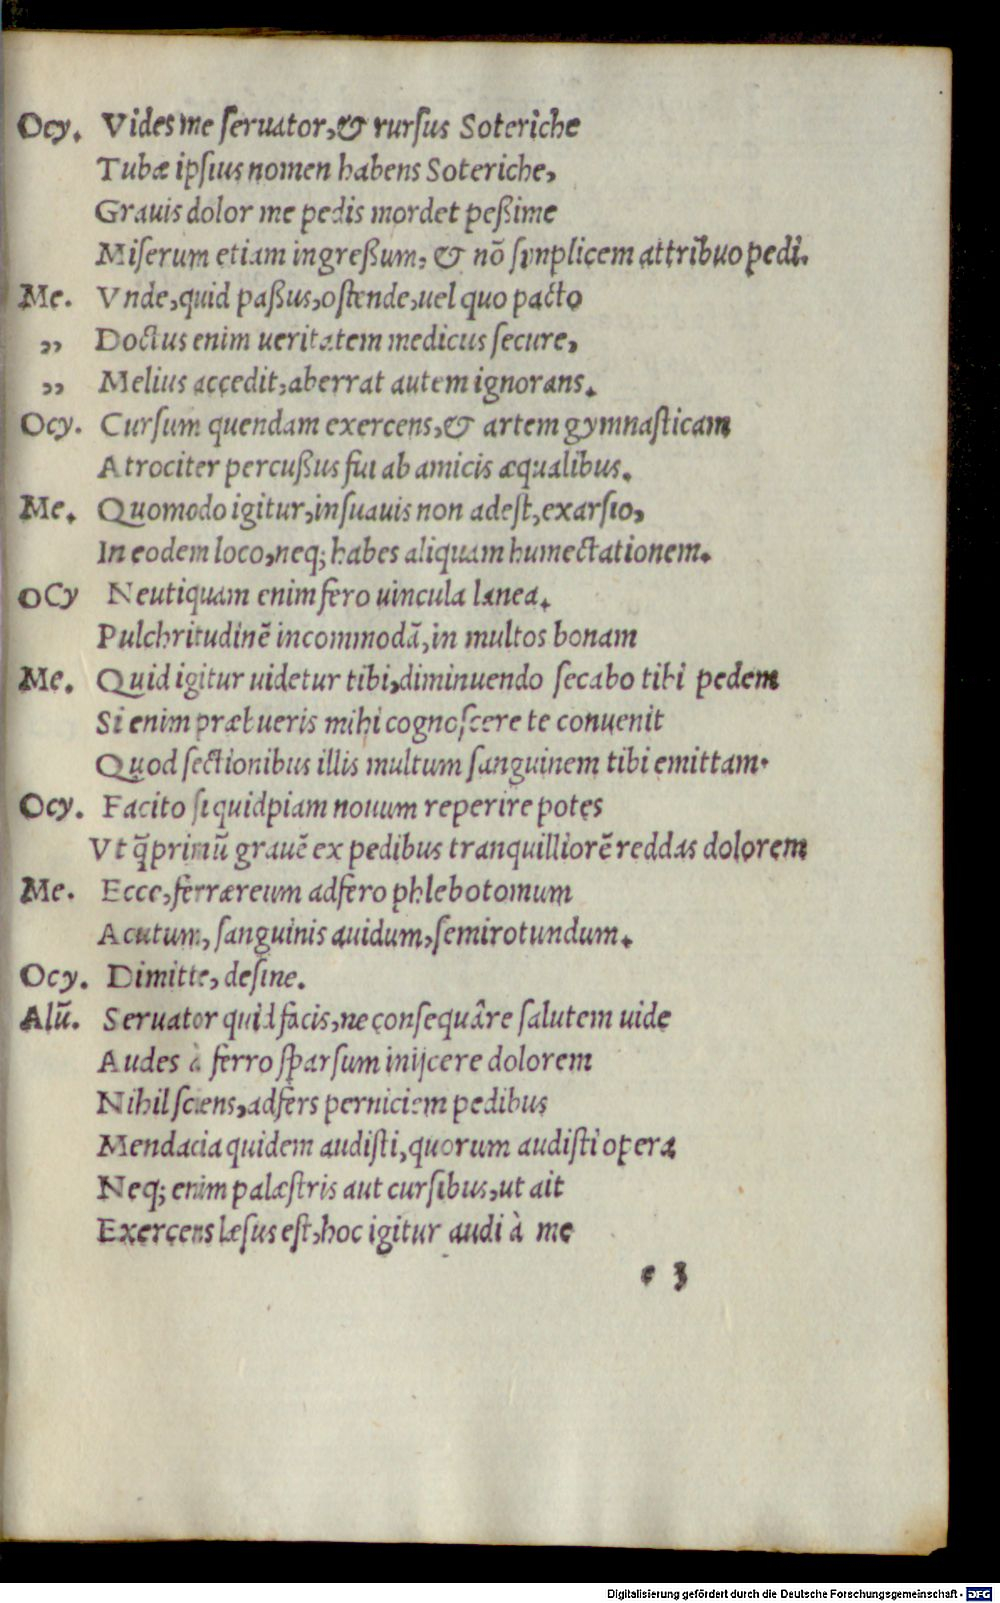 Ocy. Vides me ſeruator,& rurſus Soteriche
Tubæ ipſius nomen habens Soteriche,
Grauis dolor me pedis mordet peßime
Miſerum etiam ingreßum, & nō ſimplicem attribuo pedi.
Me. Vnde,quid paßus,oſtende,uel quo pacto
„ Doctus enim ueritatem medicus ſecure,
„ Melius accedit,aberrat autem ignorans.
Ocy. Curſum quendam exercens,& artem gymnaſticam
Atrociter percußus fui ab amicis æqualibus.
Me. Quomodo igitur,inſuauis non adeſt,exarſio,
In eodem loco,neq; habes aliquam humectationem.
OCy Neutiquam enim fero uincula lanea.
Pulchritudinē incommodā,in multos bonam
Me. Quid igitur uidetur tibi,diminuendo ſecabo tibi pedem
Si enim præbueris mihi cognoſcere te conuenit
Quod ſectionibus illis multum ſanguinem tibi emittam.
Ocy. Facito ſi quidpiam nouum reperire potes
Vt q̄primū grauē ex pedibus tranquilliorē reddas dolorem
Me. Ecce,ferræreum adfero phlebotomum
Acutum, ſanguinis auidum,ſemirotundum.
Ocy. Dimitte, deſine.
Alū. Seruator quid facis,ne conſequâre ſalutem uide
Audes à ferro ſparſum inijcere dolorem
Nihil ſciens,adfers perniciem pedibus
Mendacia quidem audiſti,quorum audiſti opera
Neq; enim palæſtris aut curſibus,ut ait
Exercens læſus eſt,hoc igitur audi à me
e 3
Digitalisierung gefördert durch die Deutsche Forschungsgemeinschaft - DFG